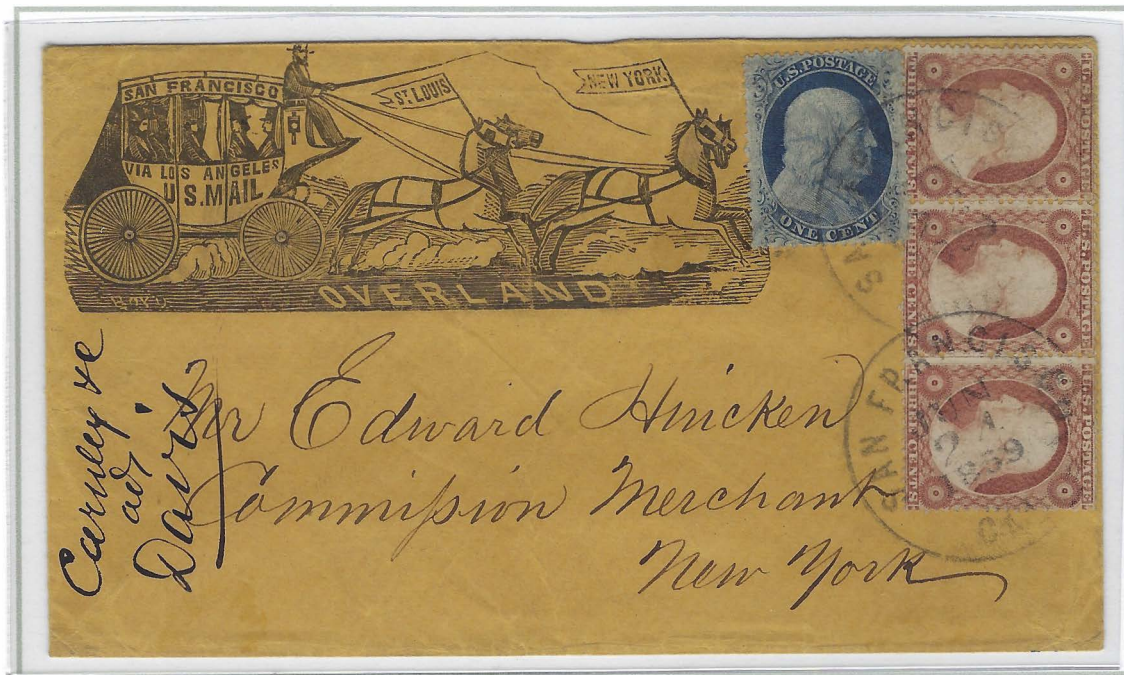 SAN FRANCISCO
VIA LOS ANGELES
U.S. MAIL
ST. LOUIS
NEW YORK.
OVERLAND
BOYD
U.S. POSTAGE
ONE CENT
U.S. POSTAGE
THREE CENTS
U.S. POSTAGE
THREE CENTS
U.S. POSTAGE
THREE CENTS
SAN FRANCISCO
CAL
JAN
1859
Mr Edward
Commission Merchant
New York
Davis